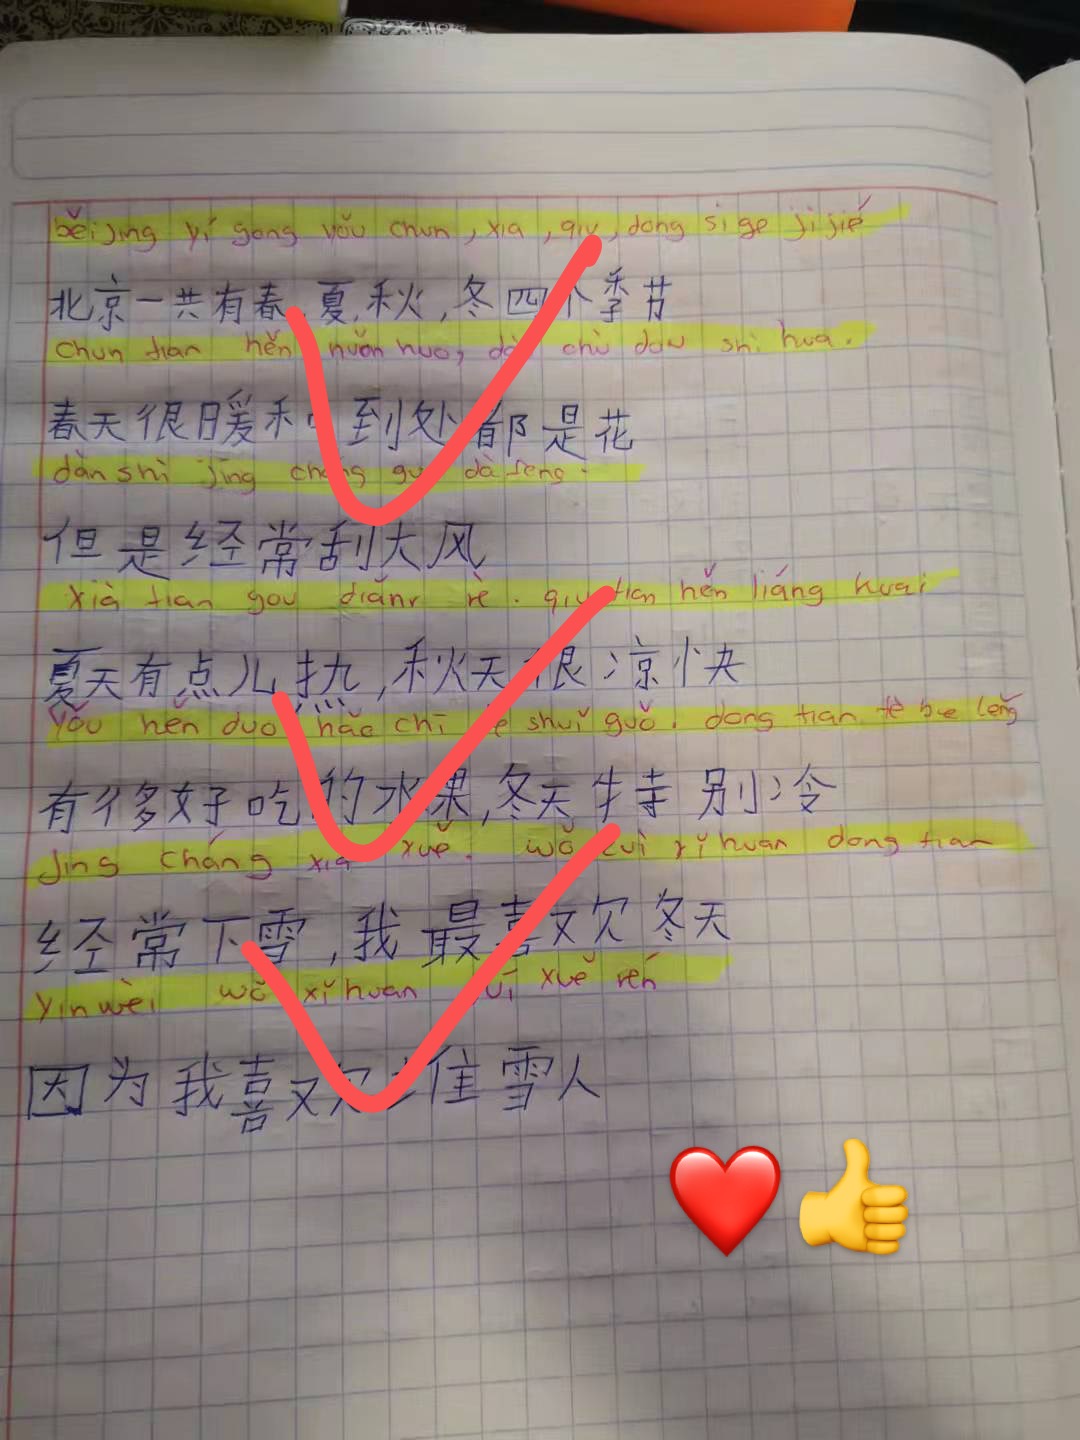 běijing yí gong yǒu chun, xia, qiu, dong si ge ji jié
北京一共有春,夏,秋,冬四个季节
chun tian hěn nuǎn huo, dào chù dou shì hua.
春天很暖和 到处都是花
dàn shì jing cháng gu dà feng.
但是经常刮大风
xià tian you diǎnr rè. qiu tian hěn liáng kuai
夏天有点儿热,秋天很凉快
yǒu hěn duo hǎo chī e shuǐ guǒ. dong tian tè bie lěng
有很多好吃的水果,冬天特别冷
jing cháng xia xuě. wǒ zuì xǐ huan dong tian
经常下雪,我最喜欢冬天
yin wèi wǒ xǐ huan xuě rén
因为我喜欢 雪人